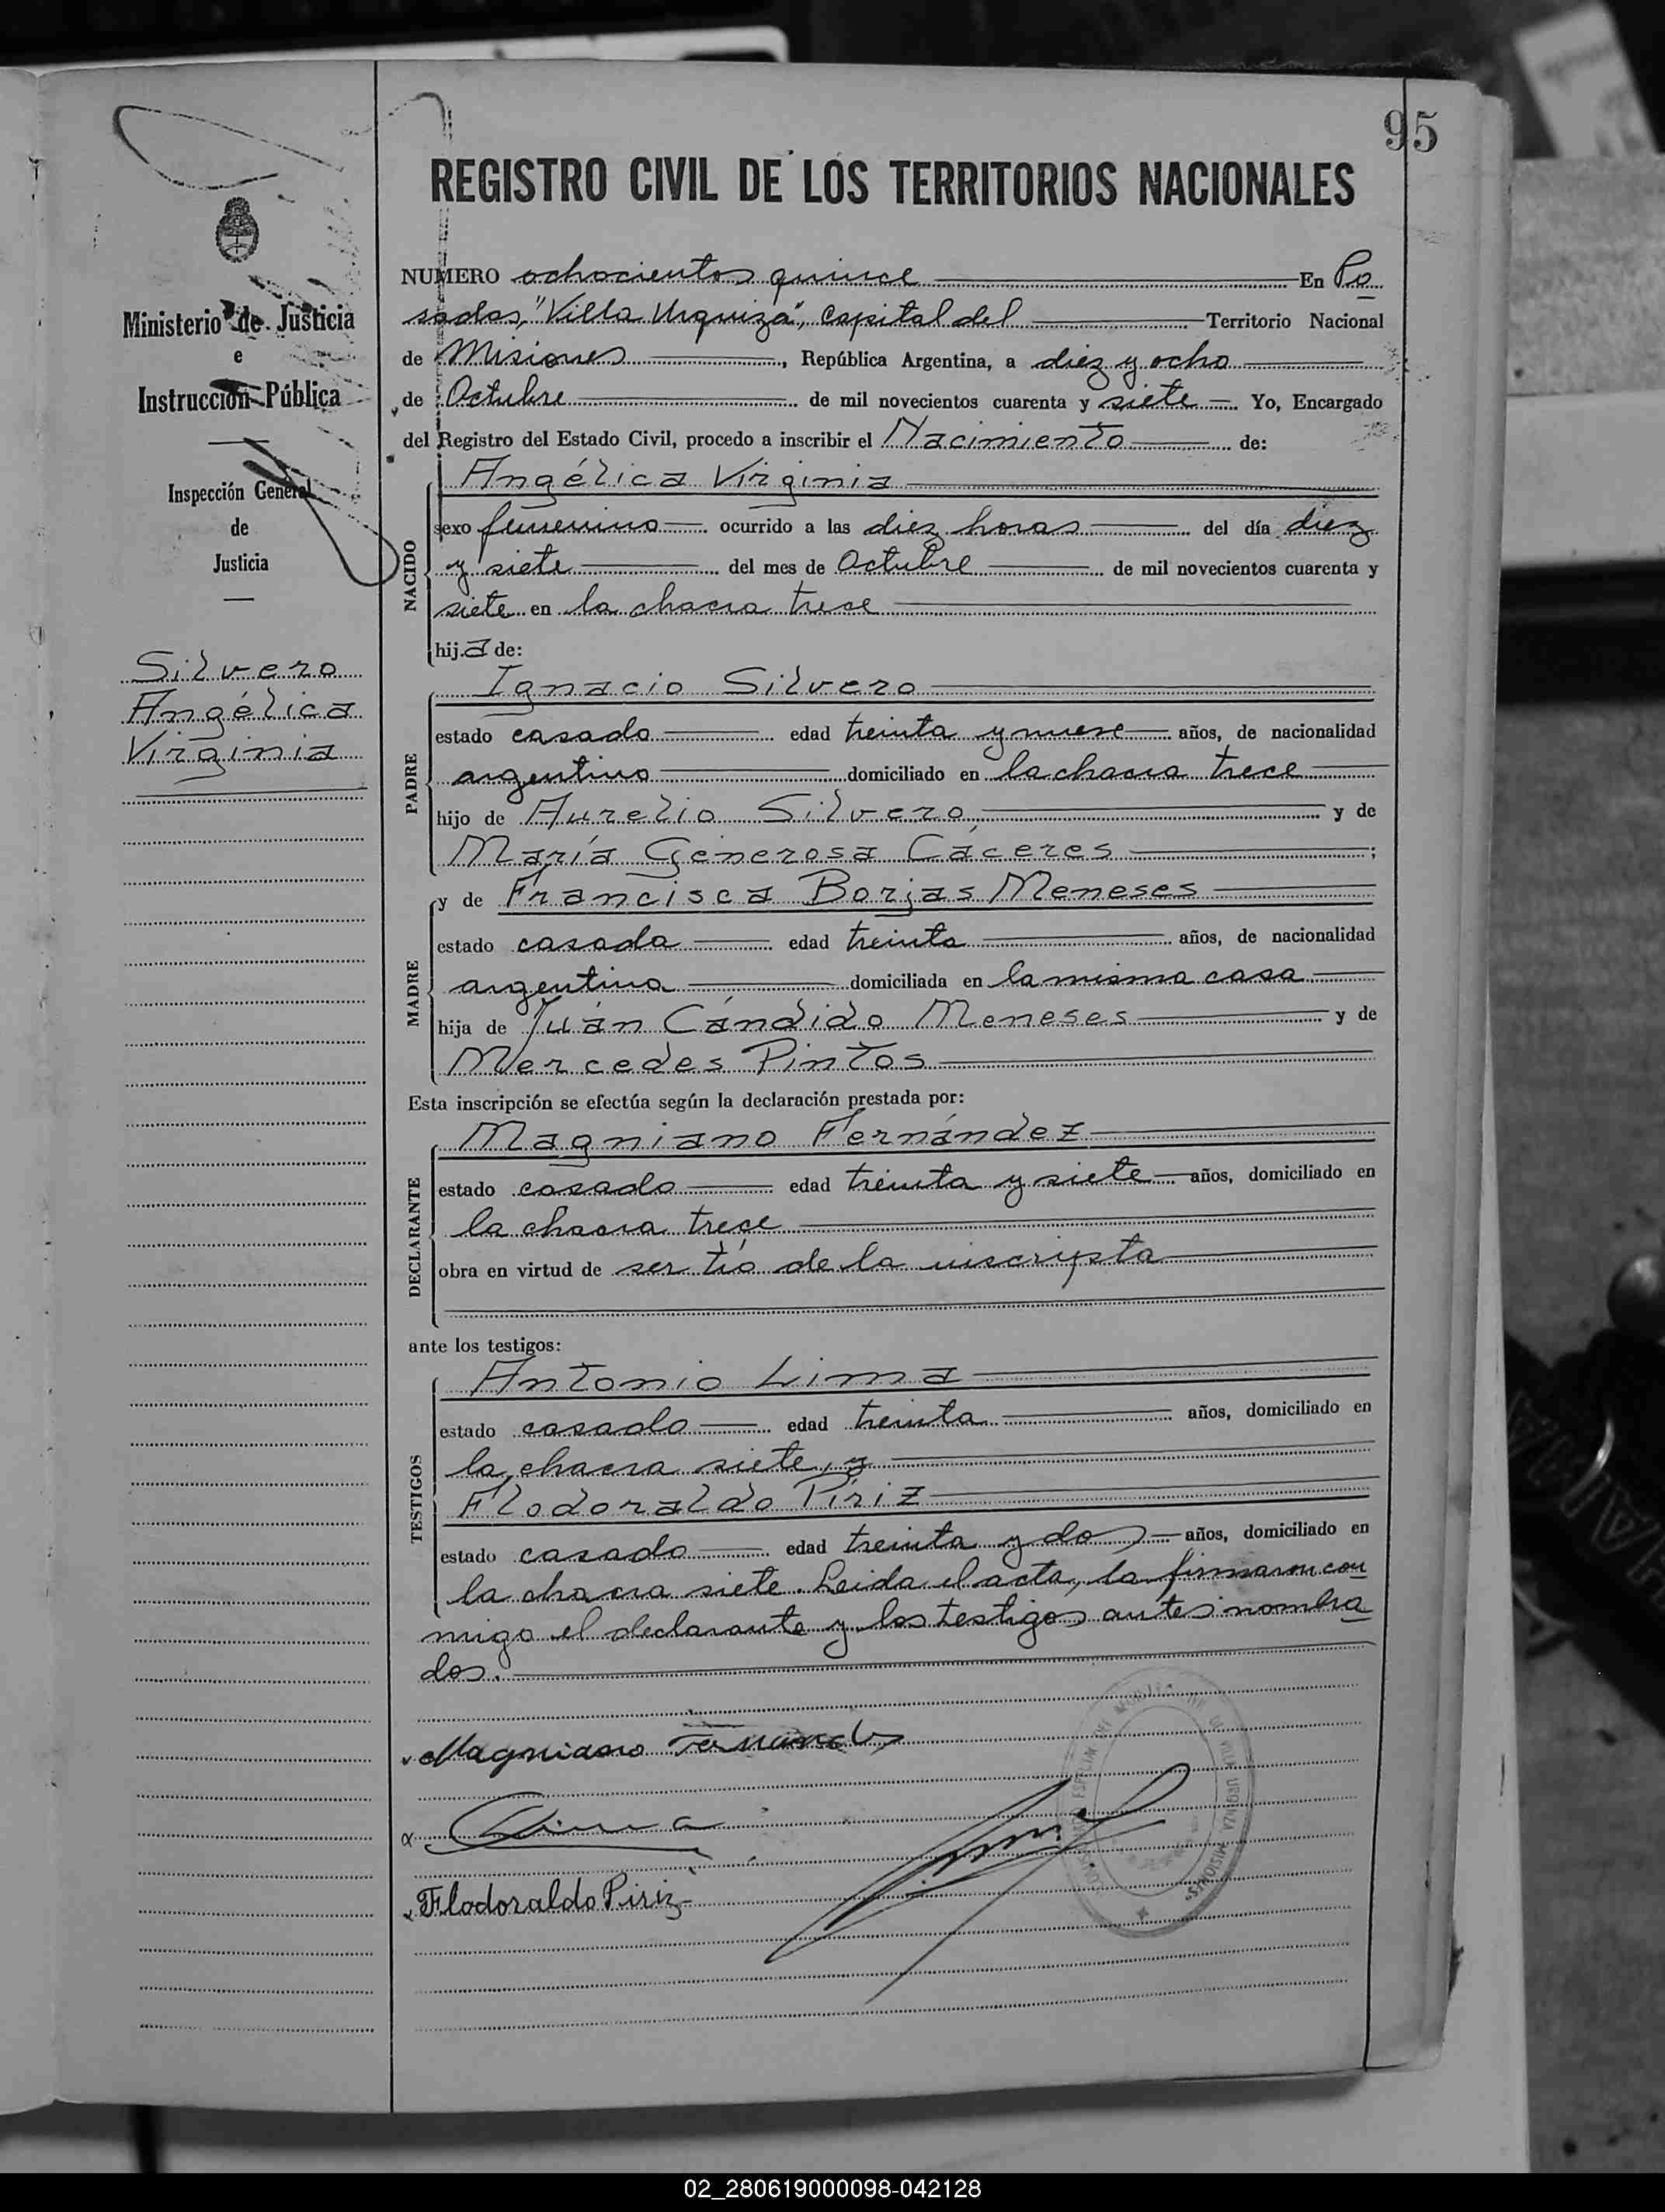 95
REGISTRO CIVIL DE LOS TERRITORIOS NACIONALES
Ministerio de Justicia
e
Instrucción Pública
Inspección General
de
Justicia
Silvero
Angélica
Virginia
NUMERO ochocientos quince En Po
sadas, "Villa Urquiza", capital del Territorio Nacional
de Misiones, República Argentina, a diez y ocho
de Octubre de mil novecientos cuarenta y siete Yo, Encargado
del Registro del Estado Civil, procedo a inscribir el Nacimiento de:
NACIDO
Angélica Virginia
sexo femenino ocurrido a las diez horas del día diez
y siete del mes de Octubre de mil novecientos cuarenta y
siete en la chacra trece
hija de:
PADRE
Ignacio Silvero
estado casado edad treinta y nueve años, de nacionalidad
argentina domiciliado en la chacra trece
hijo de Aurelio Silvero y de
María Generosa Cáceres;
MADRE
y de Francisca Borjas Meneses
estado casada edad treinta años, de nacionalidad
argentina domiciliada en la misma casa
hija de Juán Cándido Meneses y de
Mercedes Pintos
Esta inscripción se efectúa según la declaración prestada por:
DECLARANTE
Magniano Fernández
estado casado edad treinta y siete años, domiciliado en
la chacra trece
obra en virtud de ser tío de la inscripta
ante los testigos:
TESTIGOS
Antonio Lima
estado casado edad treinta años, domiciliado en
la chacra siete, y
Flodoraldo Píriz
estado casado edad treinta y dos años, domiciliado en
la chacra siete. Leida el acta, la firmaron con
migo el declarante y los testigos antes nombra
dos.
Magniano Fernandez
Lima
Flodoraldo Piriz
VILLA URQUIZA MISIONES
02_280619000098-042128